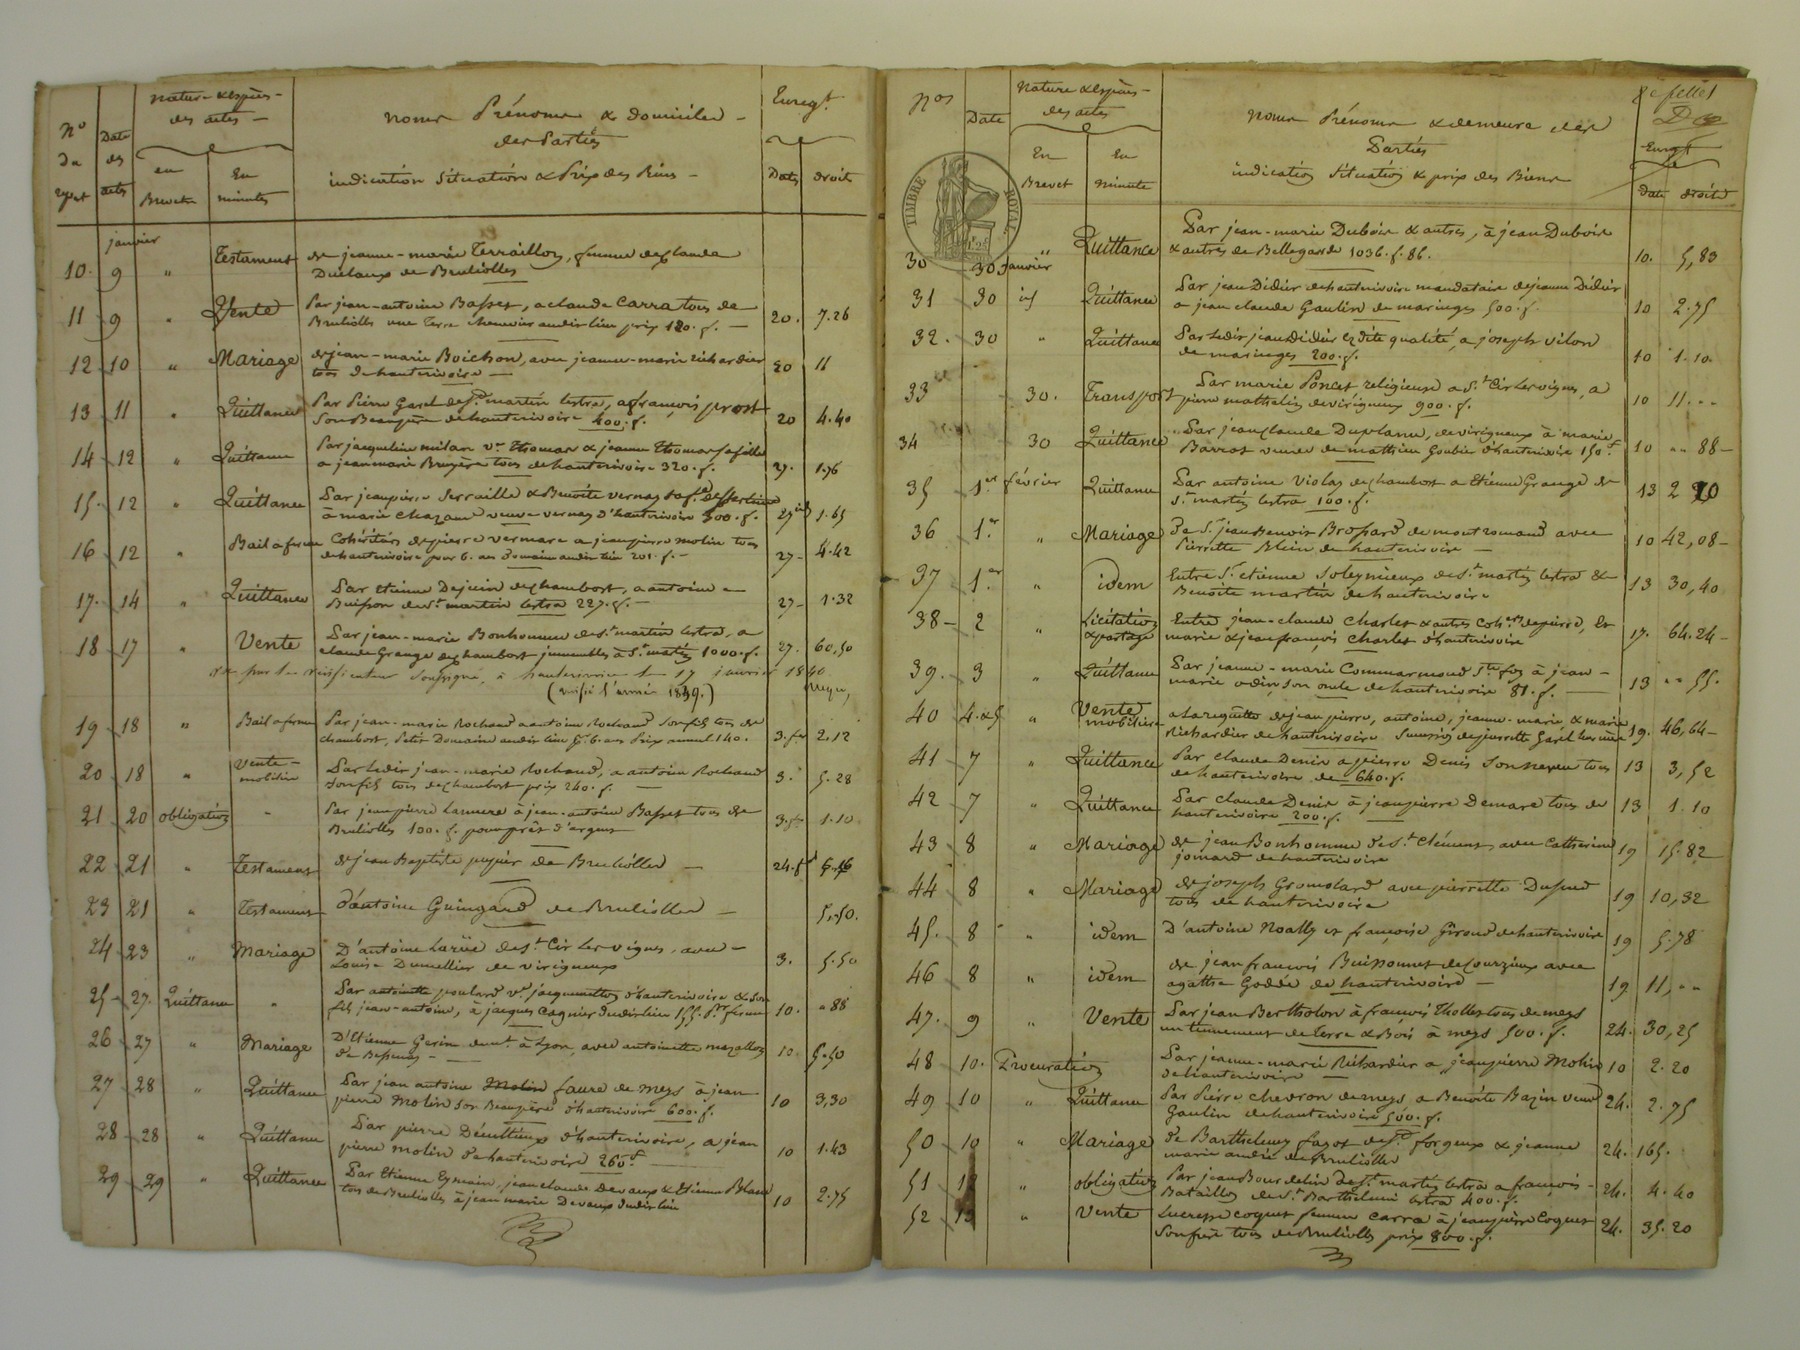 N° du Date des actes nature & espèces des actes noms Prénoms & domiciles Enreg.t
des Parties
en Brevets En minutes indication Situation & Prix des Biens Dates droits
janvier
10. 9 " Testament de jeanne-marie Terraillon, femme de Claude
de Bruliolles
11 9 " Vente Par jean-antoine Basset, a claude Carra tous de 20. 7.26
Bruliolles une Terre audit lieu prix 120. f.
12 10 " Mariage de jean-marie Boichon, avec jeanne-marie Richardier 20 11
tous de hauterivoire
13 11 " Quittance Par Pierre Garel de St martin lestra, a françois prost 20 4.40
Son Beaupère de hauterivoire 400. f.
14 12 " Quittance Par jacqueline milan ve Thomas & jeanne Thomas sa fille 27. 1.76
a jean marie Bruyère tous de hauterivoire 320. f.
15. 12 " Quittance Par jean pierre Serraille & Benoite vernay sa fe 27 1.65
à marie Chazaud veuve vernay d'hauterivoire 300. f.
16 12 " Bail a ferme Cohéritiers de pierre vermare a jean pierre molin tous 27- 4.42
de hauterivoire pour 6. ans Domaine audit lieu 201. f.
17. 14 " Quittance Par Etienne Dejoin de chambost, a antoine 27- 1.32
Buisson de St martin lestra 227. f.
18 17 " Vente Par jean-marie Bonhomme de St martin lestra, a 27. 60,50
claude Grange de chambost immeubles à St martin 1000. f.
vu par le vérificateur Soussigné, à hauterivoire le 17 janvier 1840
(vérifié l'année 1839.)
19 18 " Bail a ferme Par jean-marie Rochand a antoine Rochand son fils tous de 3. fer 2.12
chambost, Petit Domaine audit lieu Pr. 6. ans Prix annuel 140.
20 18 " Vente mobilière Par ledit jean-marie Rochand, a antoine Rochand 3. 5.28
son fils tous de chambost prix 240. f.
21 20 obligation " Par jean pierre à jean-antoine Basset tous de 3. 1.10
Brulioles 100. f. pour prêt d'argent
22 21 " Testament de jean Baptiste de Brulioller
23 21 " Testament d'antoine Guingard de Brulioller 5,50.
24 23 " Mariage D'antoine Larüe de St Cir les vignes, avec 3. 5.50
Louise Dumellier de virigneux
25 27. Quittance " Par antoinette poulard ve jacquemetton d'hauterivoire & son 10. " 88
fils jean-antoine, à jacques Cognier dudit lieu 155. f.
26 27 " Mariage D'Etienne Gerin demt à Lyon, avec antoinette mazallon 10. 5.50
de Bessenay
27 28 " Quittance Par jean antoine faure de meys à jean 10 3,30
pierre Molin son Beaupère d'hauterivoire 600. f.
28 28 " Quittance Par pierre d'hauterivoire, a jean 10 1.43
pierre molin de hauterivoire 260 f.
29 29 " Quittance Par Etienne Eymain, jean claude Devaux & Etienne Blanc 10 2.75
tous de Brulioles à jean marie Devaux dudit lieu
Nos Date Nature & espèces des actes noms Prénoms & demeure des Parties 2e fellet
En Brevet En minute indication Situation & prix des Biens Enregt date droits
TIMBRE ROYAL
30 30 janvier " Quittance Par jean-marie Dubois & autres, à jean Dubois 10. 5,83
& autres de Bellegarde 1036. f. 86.
31 30 id Quittance Par jean Didier de hauterivoire mandataire de jeanne Didier 10 2.75
a jean claude Gaulin de maringes 500. f.
32. 30 " Quittance Par ledit jean Didier esdite qualité, a joseph vilon 10 1.10.
de maringes 200. f.
33 30. Transport Par marie Poncet religieuse a St Cir les vignes, a 10 11. "
pierre mathelin de virigneux 900. f.
34 30 Quittance Par jean claude Duplanu, de virigneux à marie 10 " 88
Barrat veuve de mathieu Goubier d'hauterivoire 150 f.
35 1.er février Quittance Par antoine Violay de chambost a Etienne Grange de 13 2 20
St martin lestra 100. f.
36 1.er " Mariage De Sr jean Benoit Brossard de montromand avec 10 42,08
Pierrette Blein de hauterivoire
37 1.er " idem Entre Sr etienne Soleymieux de St martin lestra & 13 30,40
Benoite martin de hauterivoire
38 2 " Licitation & partage Entre jean-claude Charles & autres Cohers de pierre, Et 17. 64.24
marie & jean françois Charles d'hauterivoire
39. 3 " Quittance Par jeanne-marie Commarmond à jean 13 " 55.
marie odin son oncle de hauterivoire 81. f.
40 4. & 5 " Vente mobilière a la requête de jean pierre, antoine, jeanne-marie, & marie 19. 46,64
Richardier de hauterivoire
41 7 " Quittance Par claude Denis a pierre Denis son neveu tous 13 3,52
de hauterivoire de 640. f.
42 7 " Quittance Par claude Denis à jean pierre Demare tous de 13 1.10
hauterivoire 200. f.
43 8 " Mariage de jean Bonhomme de St Clément avec Catherine 19 15.82
jomard de hauterivoire
44 8 " Mariage de joseph Gromolard avec pierrette Dufud 19 10,32
tous de hauterivoire
45. 8 " idem D'antoine Noally et françoise Giroud de hauterivoire 19 5.78
46 8 " idem de jean françois Buissonnet de Courzieux avec 19 11, "
agathe Goddé de hauterivoire
47. 9 " Vente Par jean Bertholon à françois Thollet tous de meys 24. 30,25
un tennement de terre & Bois à meys 500. f.
48 10. Procuration Par jeanne-marie Richardier a jean pierre Molin 10 2.20
de hauterivoire
49 10 " Quittance Par Pierre chevron de meys a Benoite Bazin veuve 24. 2.75
Gaulin de hauterivoire 500. f.
50 10 " Mariage de Barthelemy fayot de St forgeux & jeanne 24. 165.
marie andré de Brulioller
51 12 " obligation Par jean Bourdelin de St martin lestra a françois 24. 4.40
Bataillon de St Barthelemi lestra 400. f.
52 13 " Vente Lucresse coquet femme Carra à jean pierre Coquet 24. 35.20
son frère tous de Brulioles prix 800. f.